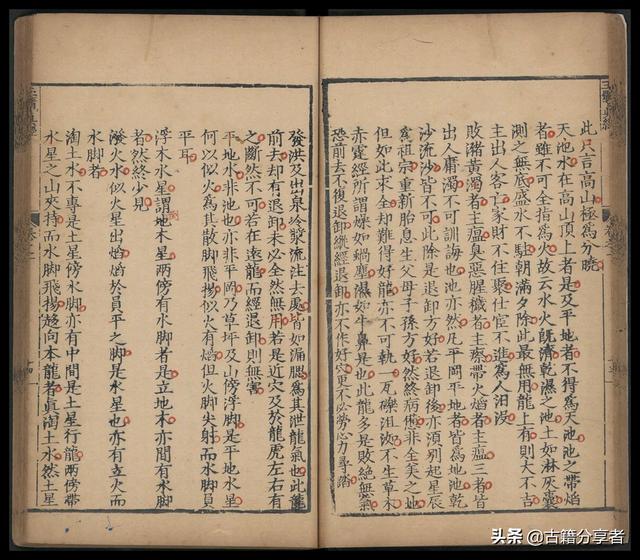 此只言高山極爲分曉
天池水在高山頂上者是及平地者不得爲天池池之帶焰
者雖不可全指爲火故云水火旣濟乾濕之池土如淋灰囊
測之無底盛水不駐朝滿夕除此最無用龍上有則大不吉
主出人客亡家財不住聚仕宦不進爲人汨沒
敗豬黃濁者主瘟臭惡腥穢者主瘵帶火熖者主瘟三者皆
出人庸濁不可訓誨也池亦然凡平岡平地者皆爲地池乾
沙流沙皆不可此除是退卸方好若退卸後亦湏別起星辰
爲祖宗重新胎息生父母子孫方好然終病憊非全美之地
但如此求全却難得好龍亦不可執一瓦礫沮洳不生草木
赤霆經所謂燥如蝸塵濕如牛鼻是也此龍多是敗絕無氣
恐前去不復退卸縱經退卸亦不作好穴更不必勞心力尋踏
發洪及出泉冷漿流注去處皆如漏腮爲其泄龍氣也此龍
前去却有退卸未必全然無用若是近穴及於龍虎左右有
之斷然不可若在遠龍而經退卸則無害
平地水非池也亦非平岡乃草坪及山傍浮脚是平地水星
何以似火爲其散脚飛揚似火有熖但火脚尖射而水脚員
平耳
浮木水星謂地木星兩傍有水脚者是立地木亦間有水脚
者然終少見
潑火水似火星出熖熖於員平之脚是水星也亦有立火而
水脚者
淘土水不專是土星傍水脚亦有中間是土星行龍兩傍帶
水星之山夾持而水脚飛揚趨向本龍者眞淘土水然土星
头条 @古籍分享者